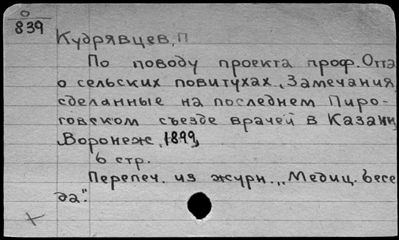 О
839
Кудрявцев, П
По поводу проекта проф. Отта
о сельских повитухах. Замечания,
сделанные на последнем Пиро-
говском съезде врачей в Казани
Воронеж, 1899,
6 стр.
Перепеч. из журн. „Медиц. бесе
да".